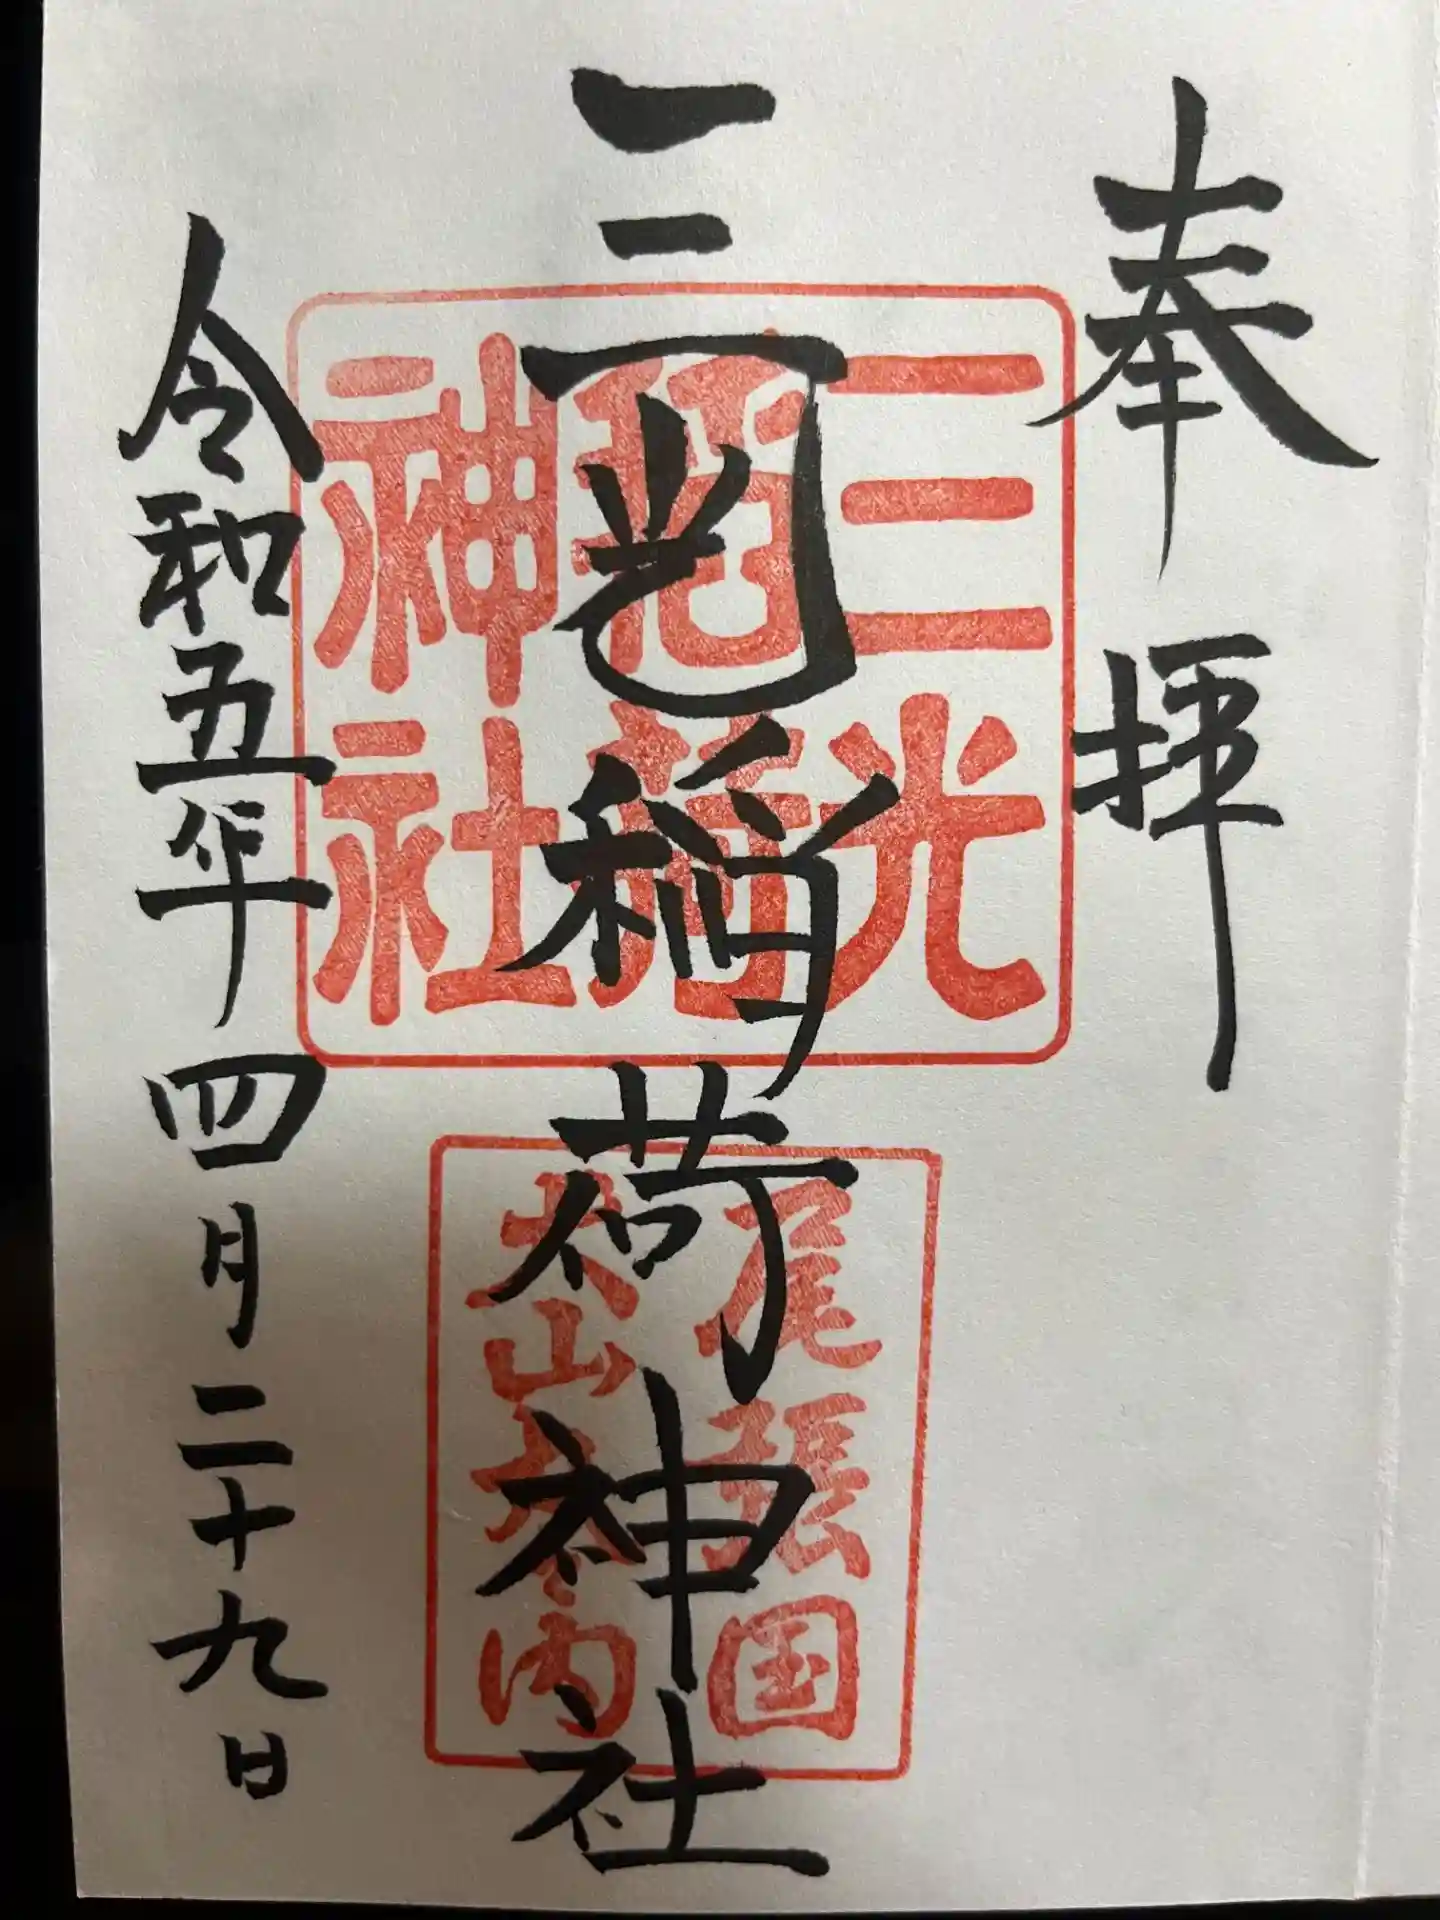 奉拝
三光稲荷神社
令和五年四月二十九日
三光
稲荷
神社
尾張国
犬山城内